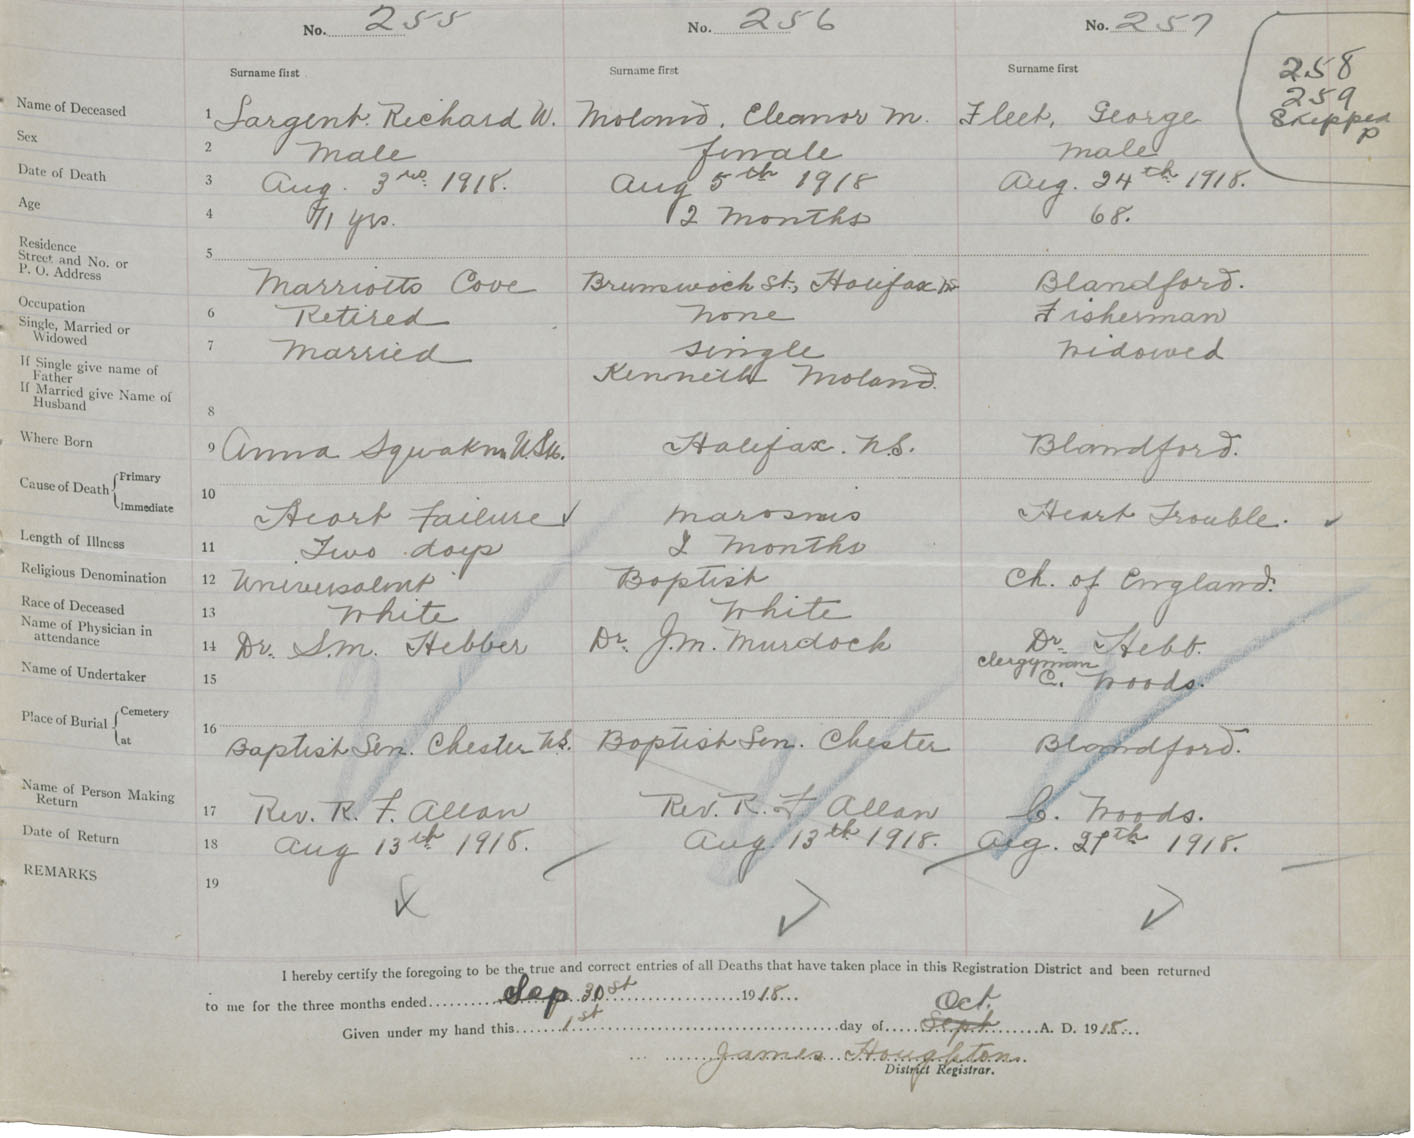 No. 255 No. 256 No. 257
258
259
Skipped
Surname first Surname first Surname first
Name of Deceased 1 Sargent. Richard W. Moland, Eleanor M. Fleet, George
Sex 2 Male female male
Date of Death 3 Aug. 3rd 1918. Aug 5th 1918 Aug. 24th 1918.
Age 4 71 yrs. 2 Months 68.
Residence
Street and No. or
P. O. Address 5
Marriotts Cove Brunswick St., Halifax Blandford.
Occupation 6 Retired none Fisherman
Single, Married or
Widowed 7 Married single Widowed
If Single give name of
Father Kenneth Moland.
If Married give Name of
Husband 8
Where Born 9 Anna Halifax. N.S. Blandford.
Cause of Death Primary 10
Immediate Heart Failure Heart Trouble.
Length of Illness 11 Two days 2 Months
Religious Denomination 12 Baptist Ch. of England.
Race of Deceased 13 White White
Name of Physician in
attendance 14 Dr. S.M. Hebber Dr. J.M. Murdock Dr. Hebb.
Name of Undertaker 15 clergyman
C. Woods.
Place of Burial Cemetery
at 16
Baptist Sem. Chester N.S. Baptist Sem. Chester Blandford.
Name of Person Making
Return 17 Rev. R. F. Allan Rev. R. F. Allan C. Woods.
Date of Return 18 Aug 13th 1918. Aug. 13th 1918. Aug. 27th 1918.
REMARKS 19
I hereby certify the foregoing to be the true and correct entries of all Deaths that have taken place in this Registration District and been returned
to me for the three months ended Sep 30st 1918
Oct.
Given under my hand this 1st day of Sept A. D. 1918
James Houghton.
District Registrar.